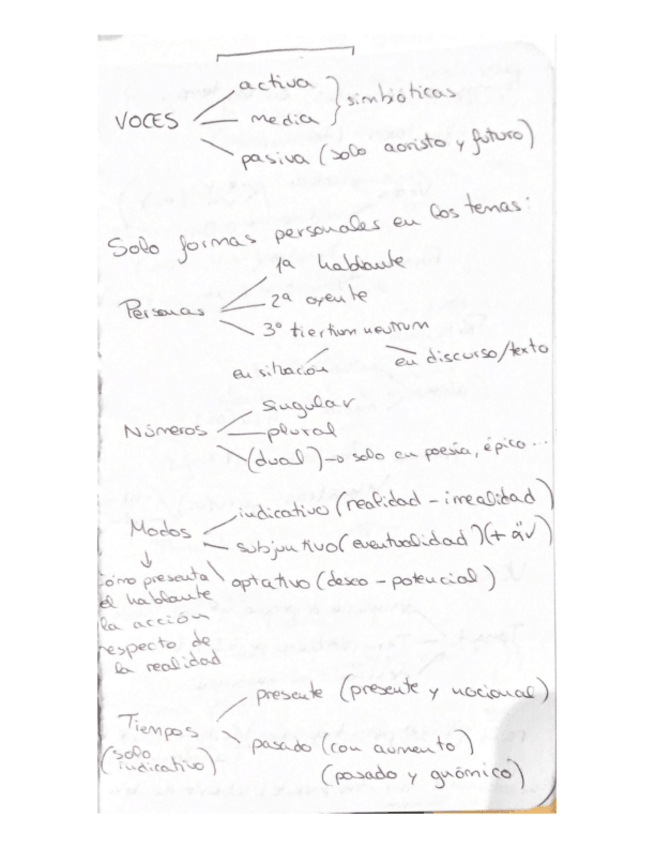 activa
VOCES media } simbióticas
pasiva (solo aoristo y futuro)
Solo formas personales en los temas:
1ª hablante
Personas 2ª oyente
3º tiertium neutrum
en sitación en discurso/texto
singular
Números plural
(dual) → solo en poesía, épico...
Modos indicativo (realidad - irrealidad)
subjuntivo (eventualidad) (+ ἄν)
↓ optativo (deseo - potencial)
cómo presenta
el hablante
la acción
respecto de
la realidad
presente (presente y nocional)
Tiempos
(solo indicativo) pasado (con aumento)
(pasado y gnómico)